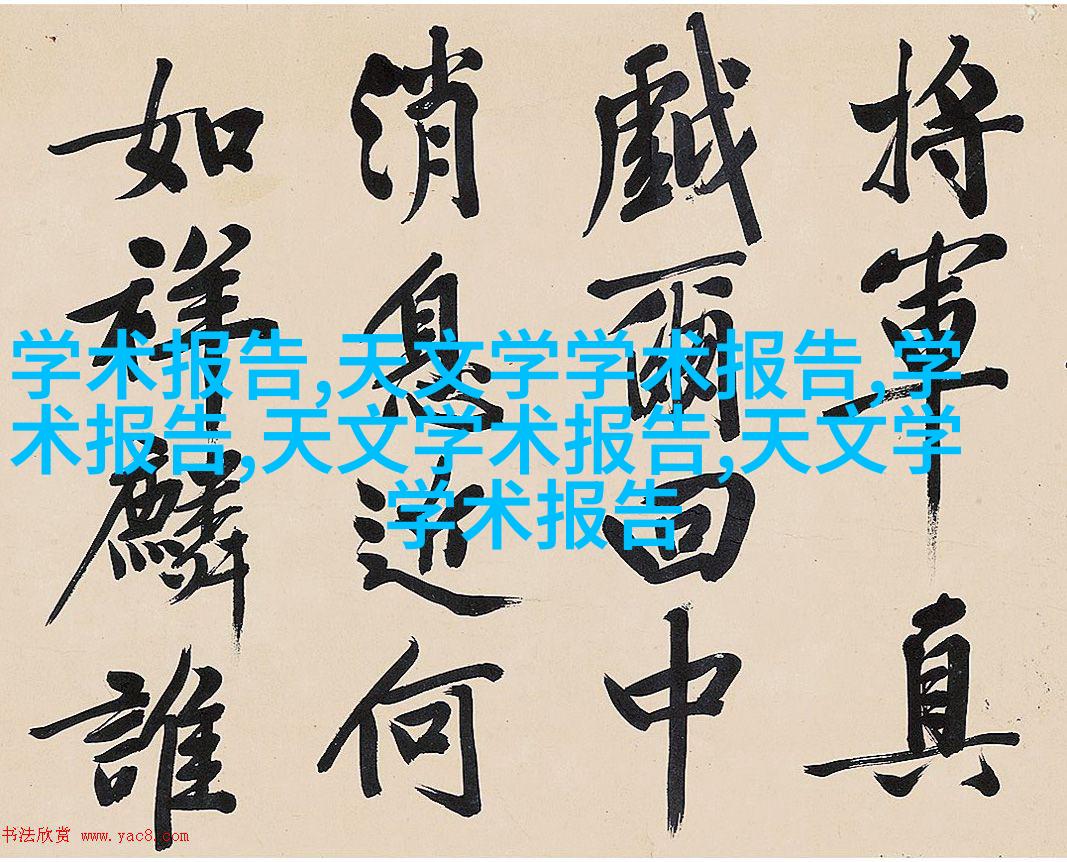 将軍真
戲爾回中
消息近何
如祥麟誰
学术报告,天文学学术报告,学
术报告,天文学术报告,天文学
学术报告
书法欣赏 www.yac8.com